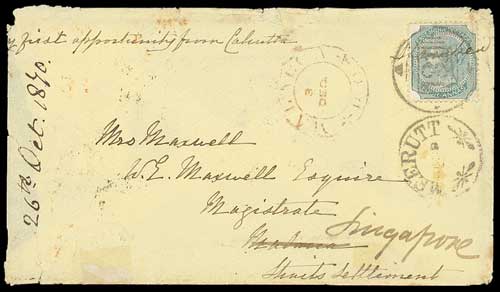 by first opportunity from Calcutta
26th Oct. 1870.
3
DEC
MEERUTT
Mrs Maxwell
W. E. Maxwell Esquire
Magistrate
Malacca Singapore
Straits Settlement